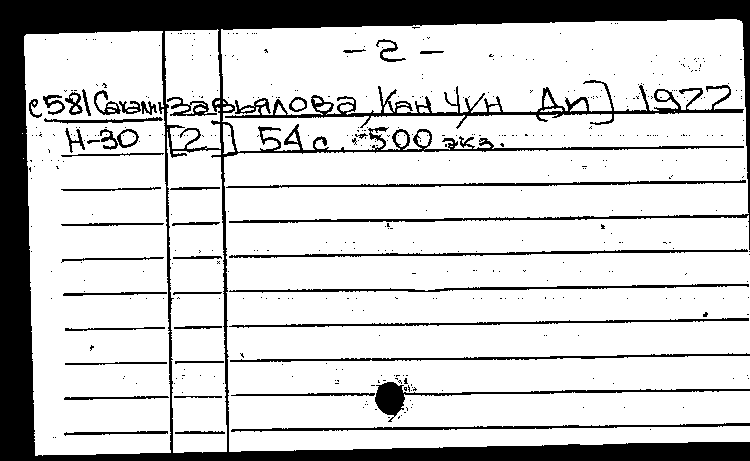 – 2 –
с581 Сахалин Завьялова, Кан Чун Дп] 1977
Н-30 [2] 54 с. 500 экз.